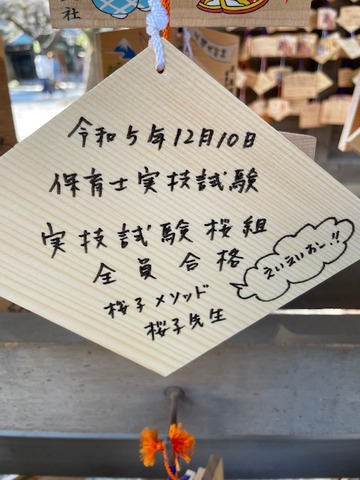 社
令和5年12月10日
保育士実技試験
実技試験桜組
全員合格
えいえいおし!!
桜子メソッド
桜子先生